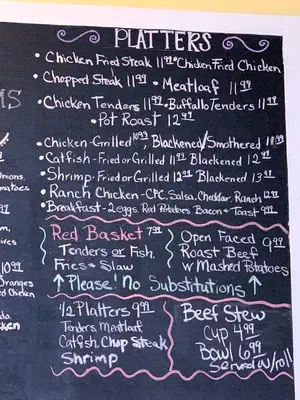 PLATTERS
• Chicken Fried Steak 11.99 • Chicken Fried Chicken
• Chopped Steak 11.99 • Meatloaf 11.99
• Chicken Tenders 11.99 - Buffalo Tenders 11.99
• Pot Roast 12.99
• Chicken - Grilled 10.99, Blackened/Smothered 11.99
• Catfish - Fried or Grilled 11.99 Blackened 12.99
• Shrimp - Fried or Grilled 12.99 Blackened 13.99
• Ranch Chicken - CFC, Salsa, Cheddar, Ranch 12.99
• Breakfast - 2 eggs, Red Potatoes, Bacon + Toast 9.99
Red Basket 7.99
Tenders or Fish,
Fries + Slaw
Open Faced 9.99
Roast Beef
w/Mashed Potatoes
↑ Please! No Substitutions ↑
1/2 Platters 9.99
Tenders, Meatloaf
Catfish, Chop Steak
Shrimp
Beef Stew
Cup 4.99
Bowl 6.99
Served w/roll
10.99